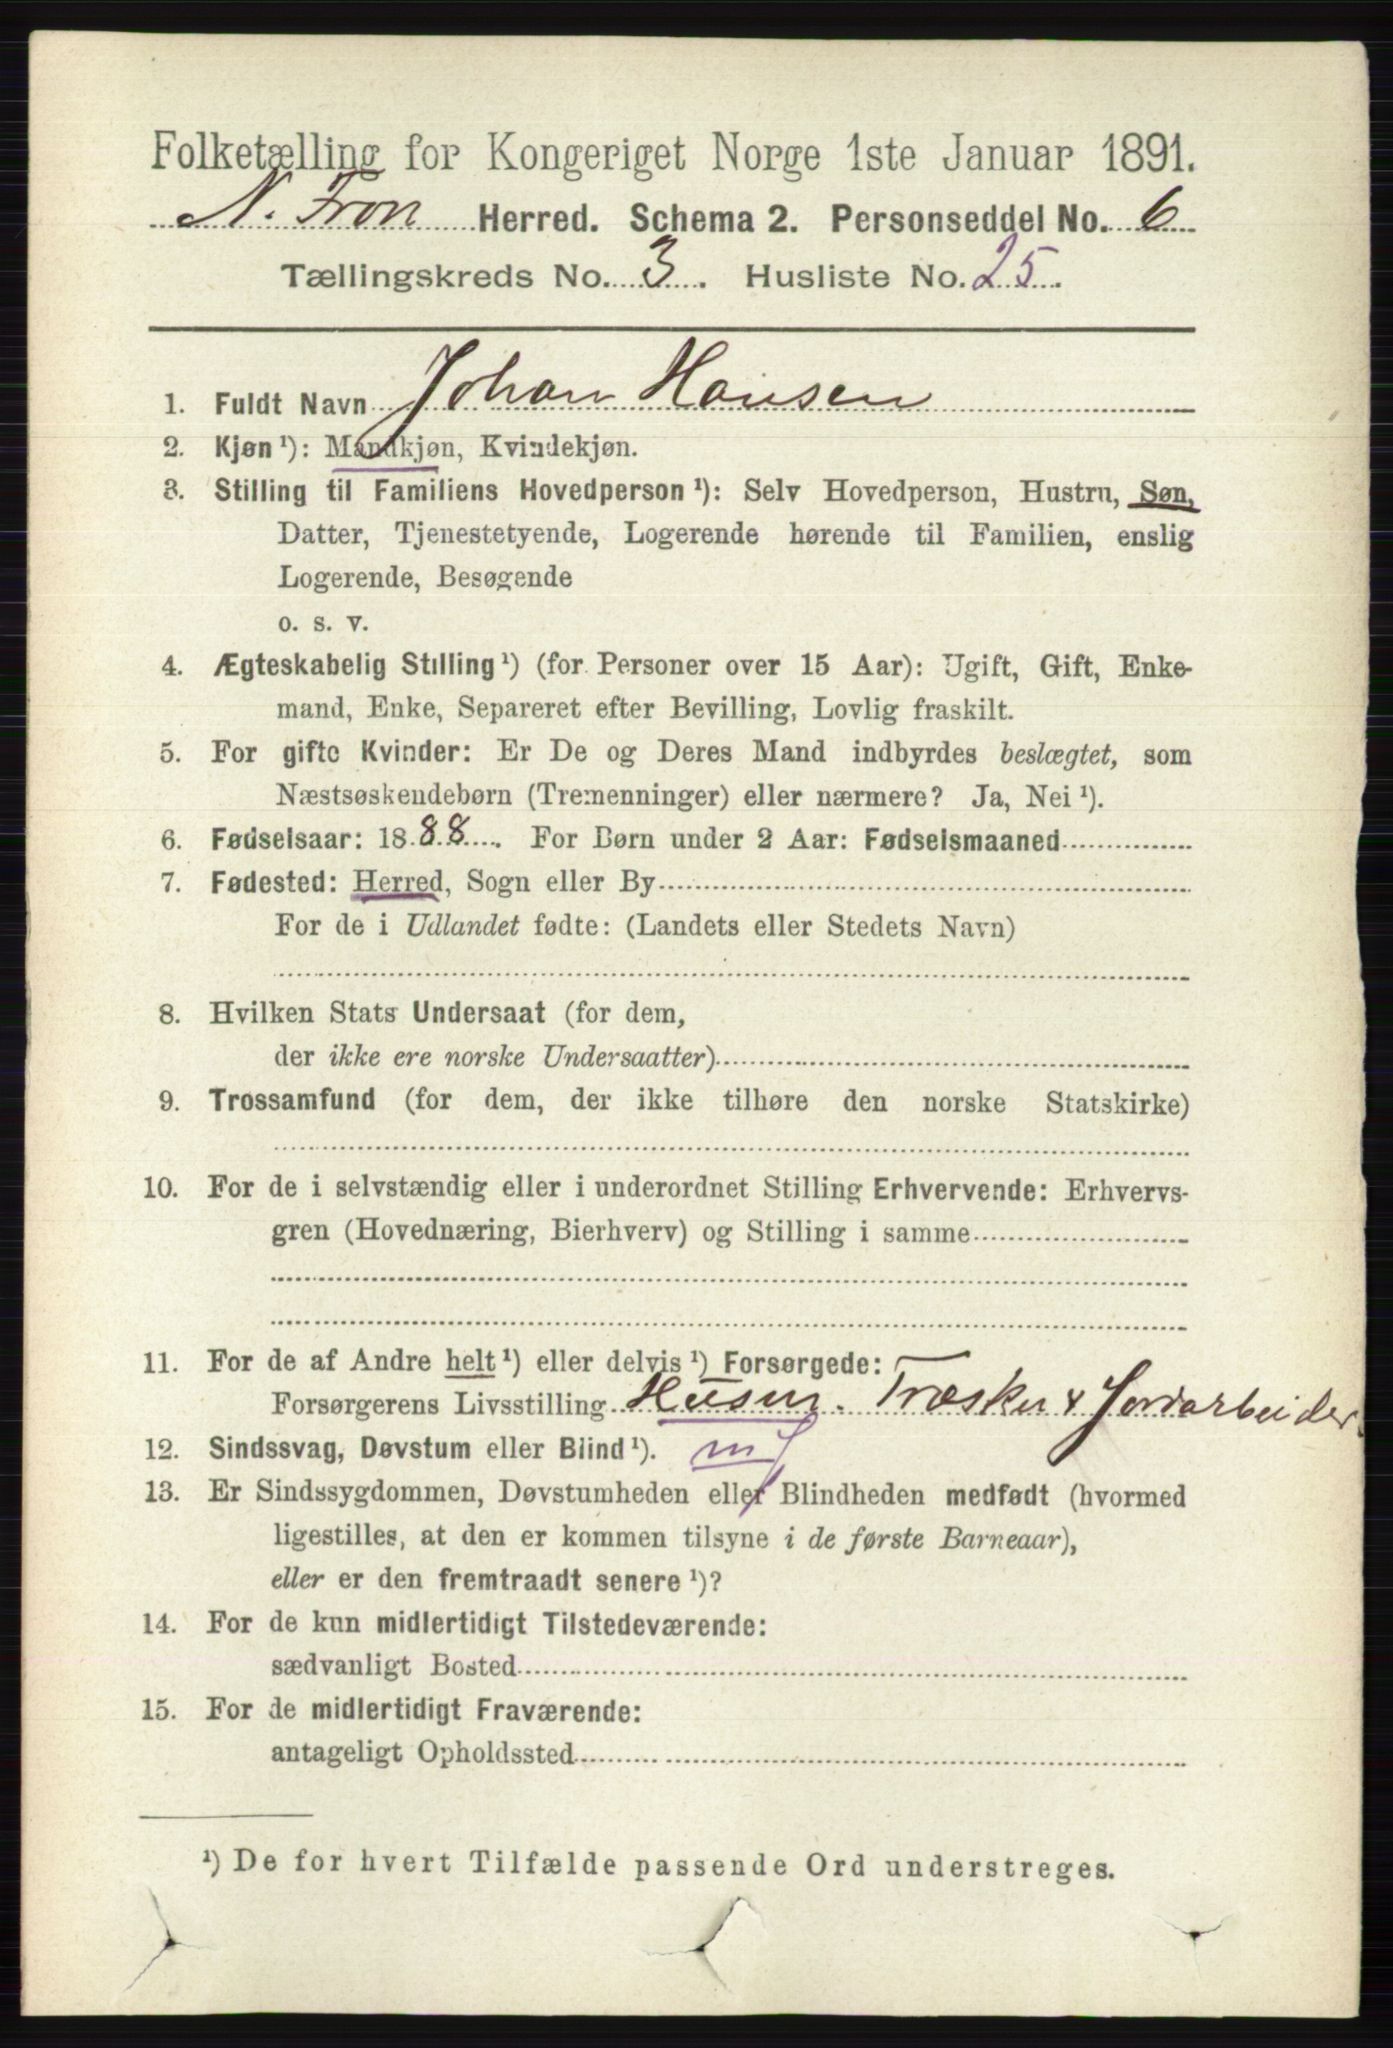 Folketælling for Kongeriget Norge 1ste Januar 1891.
N. Fron Herred. Schema 2. Personseddel No. 6
Tællingskreds No. 3. Husliste No. 25.
1. Fuldt Navn Johan Hansen
2. Kjøn ¹): Mandkjøn, Kvindekjøn.
3. Stilling til Familiens Hovedperson ¹): Selv Hovedperson, Hustru, Søn,
Datter, Tjenestetyende, Logerende hørende til Familien, enslig
Logerende, Besøgende
o. s. v.
4. Ægteskabelig Stilling ¹) (for Personer over 15 Aar): Ugift, Gift, Enke-
mand, Enke, Separeret efter Bevilling, Lovlig fraskilt.
5. For gifte Kvinder: Er De og Deres Mand indbyrdes beslægtet, som
Næstsøskendebørn (Tremenninger) eller nærmere? Ja, Nei ¹).
6. Fødselsaar: 1888. For Børn under 2 Aar: Fødselsmaaned
7. Fødested: Herred, Sogn eller By
For de i Udlandet fødte: (Landets eller Stedets Navn)
8. Hvilken Stats Undersaat (for dem,
der ikke ere norske Undersaatter)
9. Trossamfund (for dem, der ikke tilhøre den norske Statskirke)
10. For de i selvstændig eller i underordnet Stilling Erhvervende: Erhvervs-
gren (Hovednæring, Bierhverv) og Stilling i samme
11. For de af Andre helt ¹) eller delvis ¹) Forsørgede:
Forsørgerens Livsstilling Husm. Træsker & Jordarbeider.
12. Sindssvag, Døvstum eller Blind ¹). mf
13. Er Sindssygdommen, Døvstumheden eller Blindheden medfødt (hvormed
ligestilles, at den er kommen tilsyne i de første Barneaar),
eller er den fremtraadt senere ¹)?
14. For de kun midlertidigt Tilstedeværende:
sædvanligt Bosted
15. For de midlertidigt Fraværende:
antageligt Opholdssted
¹) De for hvert Tilfælde passende Ord understreges.